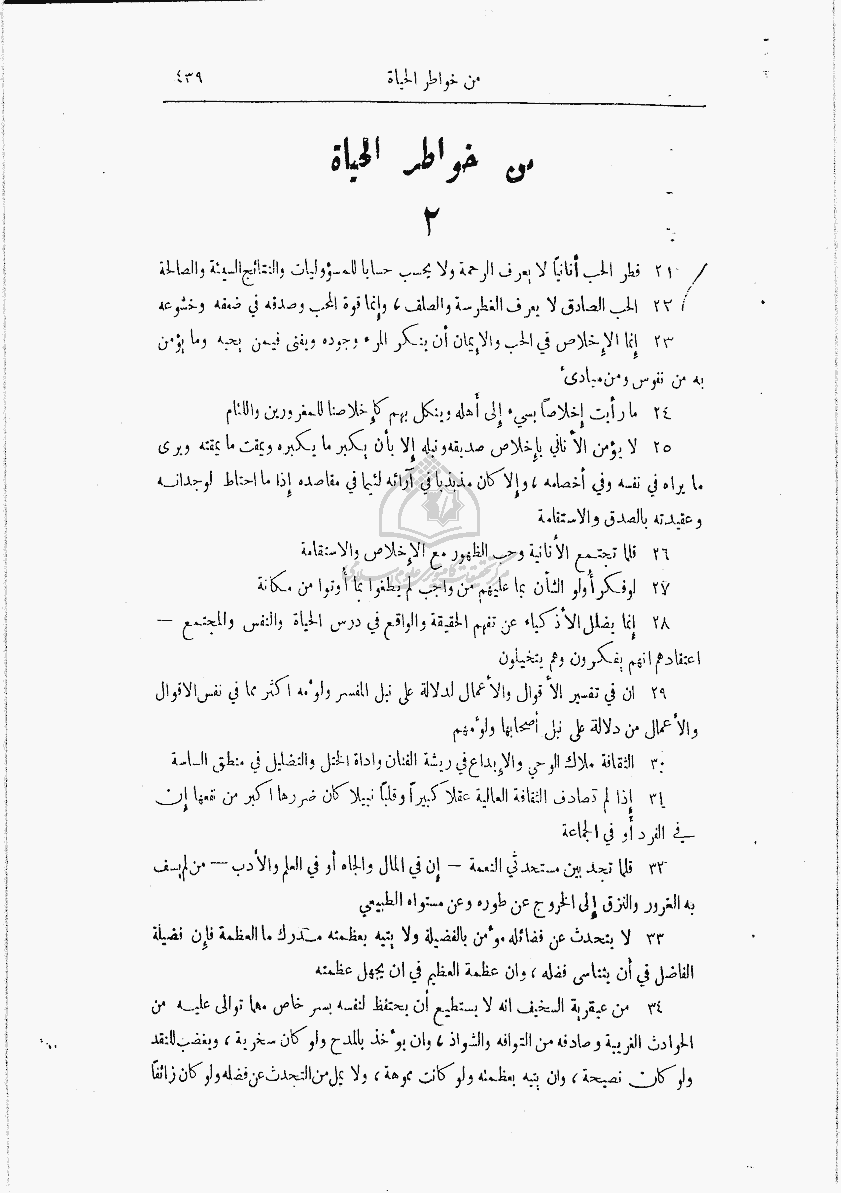 من خواطر الحياة ٤٣٩
من خواطر الحياة
٢
٢١ فطر الحب أنانياً لا يعرف الرحمة ولا يحسب حسابا للمسؤوليات والنتائج السيئة والصالحة
٢٢ الحب الصادق لا يعرف الغطرسة والصلف ، وإنما قوة المحب وصدقه في ضعفه وخشوعه
٢٣ إنما الإخلاص في الحب والإيمان أن ينكر المرء وجوده ويفنى فيمن يحبه وما يؤمن
به من نفوس ومن مبادئ
٢٤ ما رأيت إخلاصاً يسيء إلى أهله وينكل بهم كإخلاصنا للمغرورين واللئام
٢٥ لا يؤمن الأناني بإخلاص صديقه ونبله إلا بأن يكبر ما يكبره ويمقت ما يمقته ويرى
ما يراه في نفسه وفي أخصامه ، وإلا كان مذبذبا في آرائه لئيما في مقاصده إذا ما احتاط لوجدانه
وعقيدته بالصدق والاستقامة
٢٦ قلما تجتمع الأنانية وحب الظهور مع الإخلاص والاستقامة
٢٧ لو فكر أولو الشأن بما عليهم من واجب لم يطغوا بما أوتوا من مكانة
٢٨ إنما يضلل الأذكياء عن تفهم الحقيقة والواقع في درس الحياة والنفس والمجتمع —
اعتقادهم انهم يفكرون وهم يتخيلون
٢٩ ان في تفسير الأقوال والأعمال لدلالة على نبل المفسر ولؤمه اكثر مما في نفس الاقوال
والأعمال من دلالة على نبل أصحابها ولؤمهم
٣٠ الثقافة ملاك الوحي والإبداع في ريشة الفنان واداة الختل والتضليل في منطق الساسة
٣١ إذا لم تصادف الثقافة العالية عقلا كبيراً وقلباً نبيلا كان ضررها اكبر من نفعها إن
في الفرد أو في الجماعة
٣٢ قلما تجد بين مستحدثي النعمة — إن في المال والجاه أو في العلم والأدب — من لم يسف
به الغرور والنزق إلى الخروج عن طوره وعن مستواه الطبيعي
٣٣ لا يتحدث عن فضائله مؤمن بالفضيلة ولا يتيه بعظمته مدرك ما العظمة فإن فضيلة
الفاضل في أن يتناسى فضله ، وان عظمة العظيم في ان يجهل عظمته
٣٤ من عبقرية السخيف انه لا يستطيع أن يحتفظ لنفسه بسر خاص مهما توالى عليه من
الحوادث الغريبة وصادفه من التوافه والشواذ ، وان يؤخذ بالمدح ولو كان سخرية ، ويغضب للنقد
ولو كان نصيحة ، وان يتيه بعظمته ولو كانت مموهة ، ولا يمل من التحدث عن فضله ولو كان زائفاً